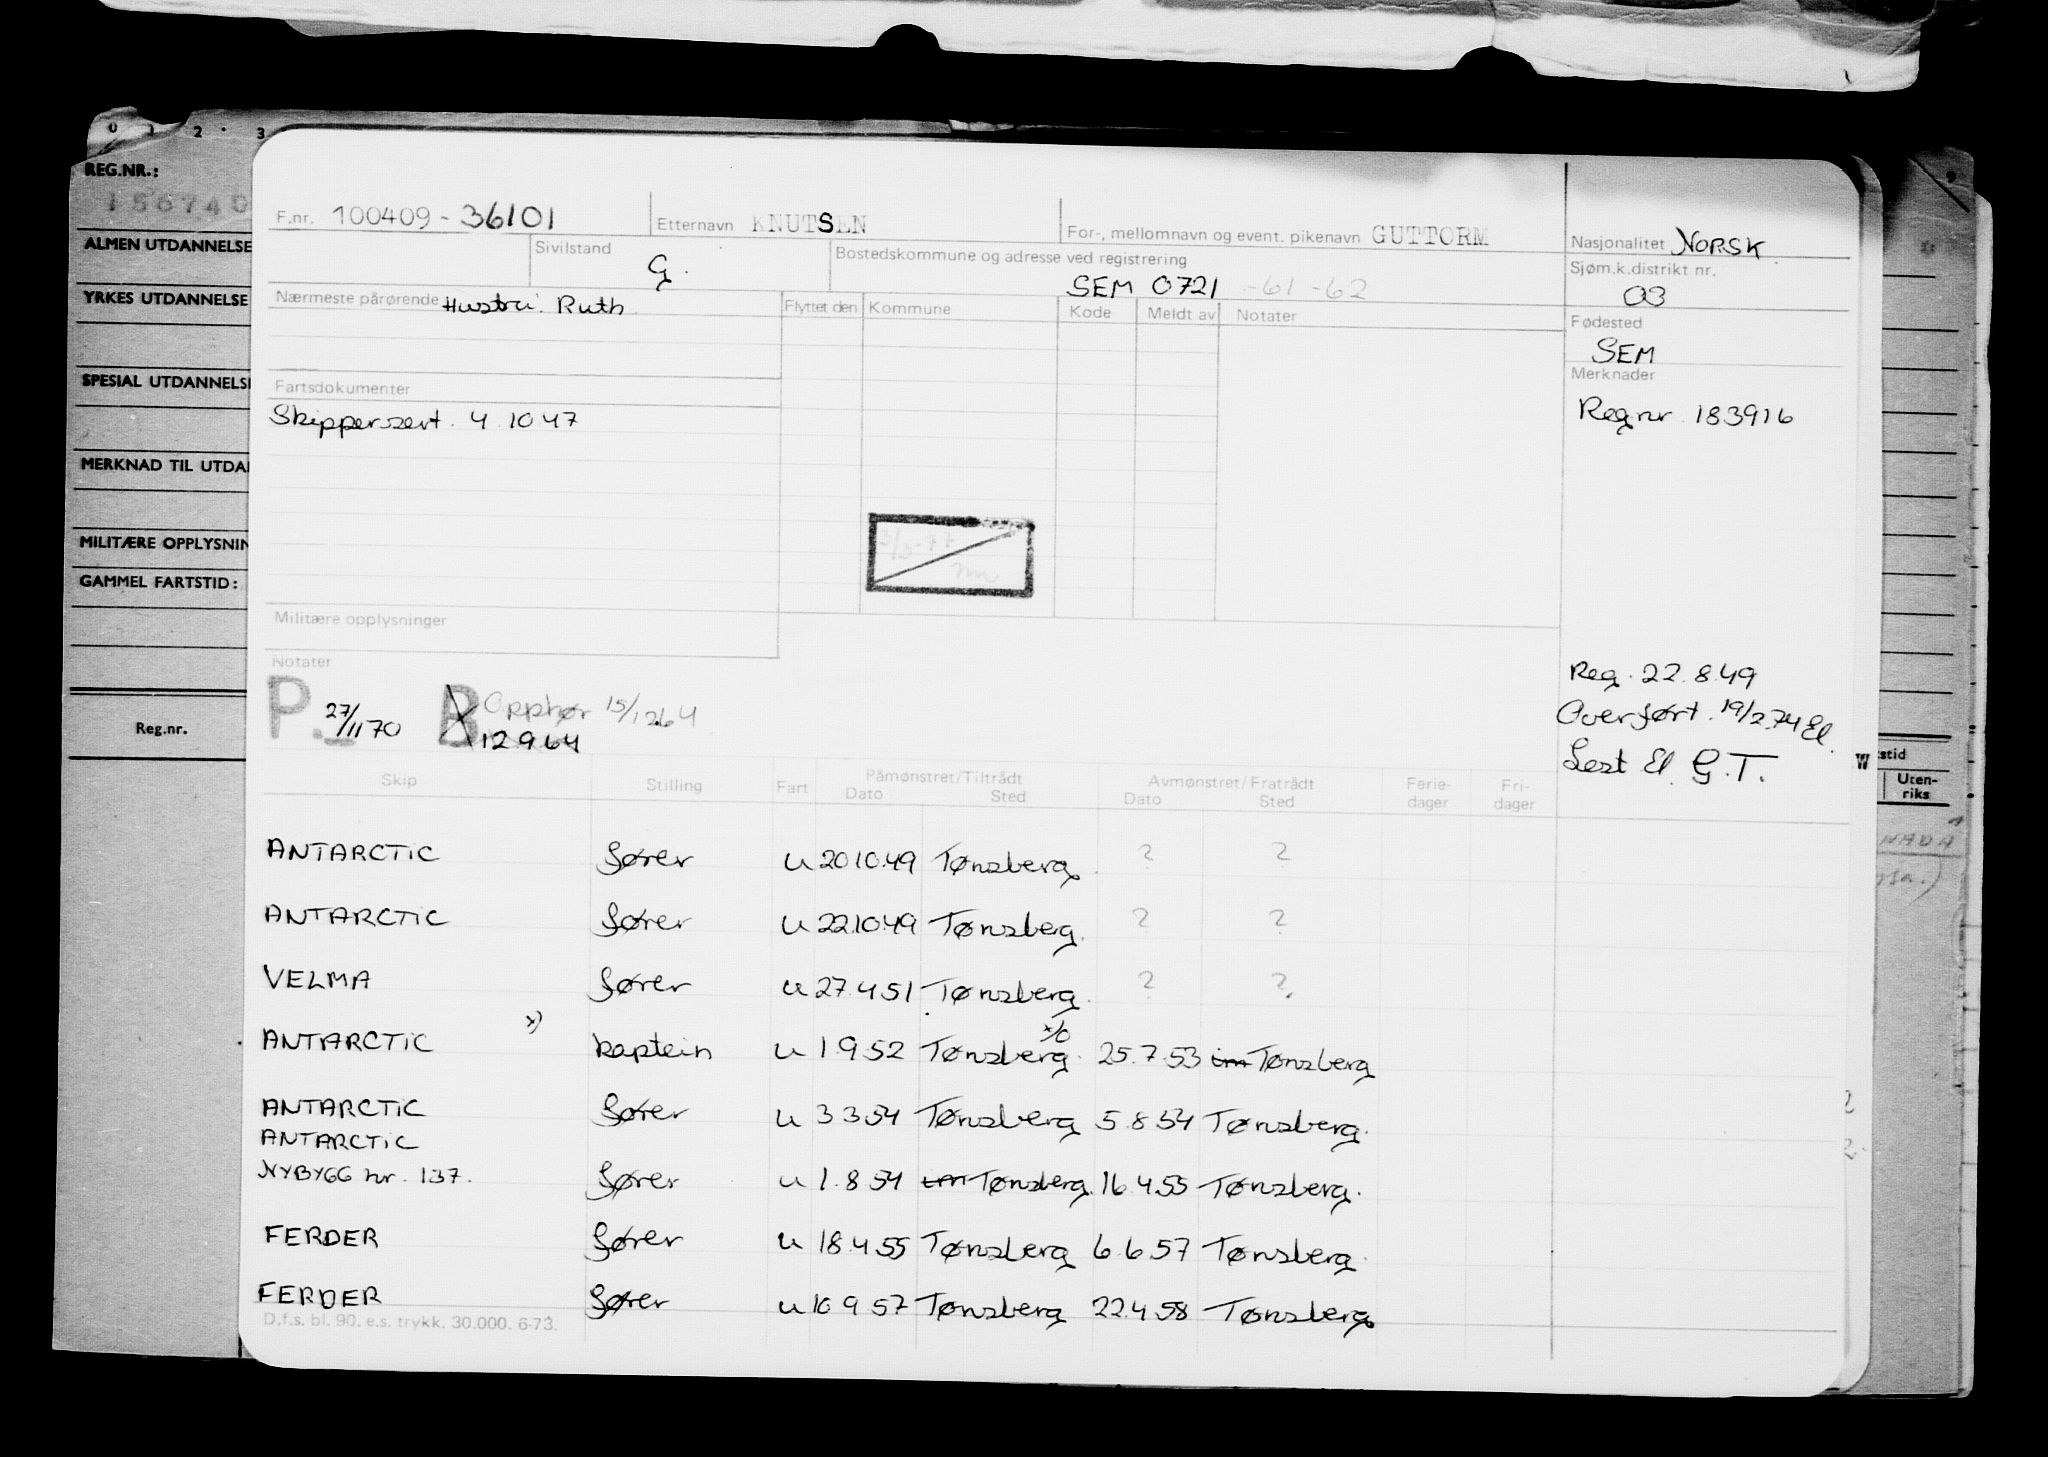 0 1 2 3
REG.NR.:
ALMEN UTDANNELSE
YRKES UTDANNELSE
SPESIAL UTDANNELSE
MERKNAD TIL UTDA
MILITÆRE OPPLYSNIN
GAMMEL FARTSTID:
Reg.nr.
F.nr. 100409-36101 Etternavn KNUTSEN For-, mellomnavn og event. pikenavn GUTTORM Nasjonalitet NORSK
Sivilstand G. Bostedskommune og adresse ved registrering SEM 0721 -61-62 Sjøm.k.distrikt nr. 03
Nærmeste pårørende Hustru. Ruth Flyttet den Kommune Kode Meldt av Notater Fødested
SEM
Fartsdokumenter Merknader
Skippersert. 4.10.47 Reg.nr. 183916
3/5-77
Militære opplysninger
Notater
Reg. 22.8.49
P. 27/11 70 B Opphør 15/12.64 Overført. 19/2.74 El.
12 9 64
Lest El. G.T.
Skip Stilling Fart Påmønstret/Tiltrådt Avmønstret/Fratrådt Ferie-dager Fri-dager
Dato Sted Dato Sted
ANTARCTIC fører u 20.10.49 Tønsberg. ? ?
ANTARCTIC fører u 22.10.49 Tønsberg. ? ?
VELMA fører u 27.4.51 Tønsberg. ? ?
ANTARCTIC x) kaptein u 1.9.52 Tønsberg. 25.7.53 Tønsberg
ANTARCTIC fører u 3.3.54 Tønsberg 5.8.54 Tønsberg.
ANTARCTIC
NYBYGG nr. 137. fører u 1.8.54 Tønsberg. 16.4.55 Tønsberg.
FERDER fører u 18.4.55 Tønsberg 6.6.57 Tønsberg.
FERDER fører u 10.9.57 Tønsberg 22.4.58 Tønsberg.
D.f.s. bl. 90. e.s. trykk. 30.000. 6-73.
W
stid
Uten-
riks
NADA